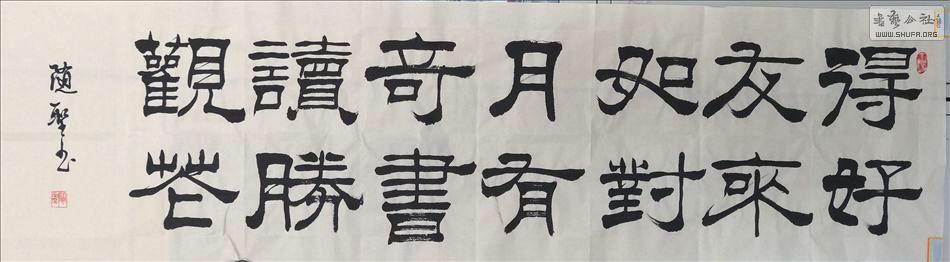 得好
友來
如對
月有
奇書
讀勝
觀花
随聖书
書藝公社
WWW.SHUFA.ORG